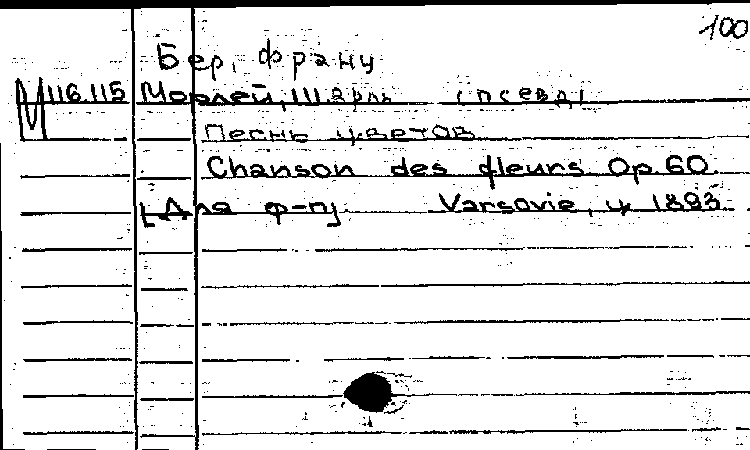 100
Бер, Франц
М 116.115 Морлей, Шарль (псевд)
Песнь цветов
Chanson des fleurs Op. 60.
[Для ф-п] Varsovie, ц. 1893.